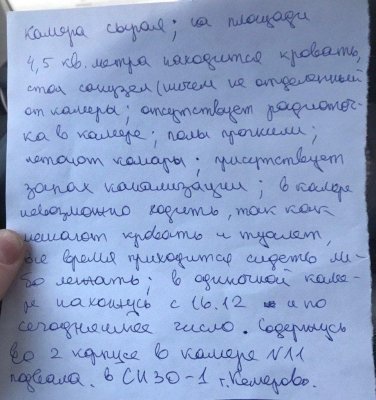 Камера сырая; на площади
4,5 кв. метра находится кровать,
стол санузел (ничем не отделенный
от камеры; отсутствует радиоточ-
ка в камере; полы прогнили;
летают комары; присутствует
запах канализации; в камере
невозможно ходить, так как
мешают кровать и туалет,
все время приходится сидеть ли-
бо лежать; в одиночной каме-
ре нахожусь с 16.12 и по
сегодняшнее число. Содержусь
во 2 корпусе в камере N11
подвала. в СИЗО-1 г. Кемерово.